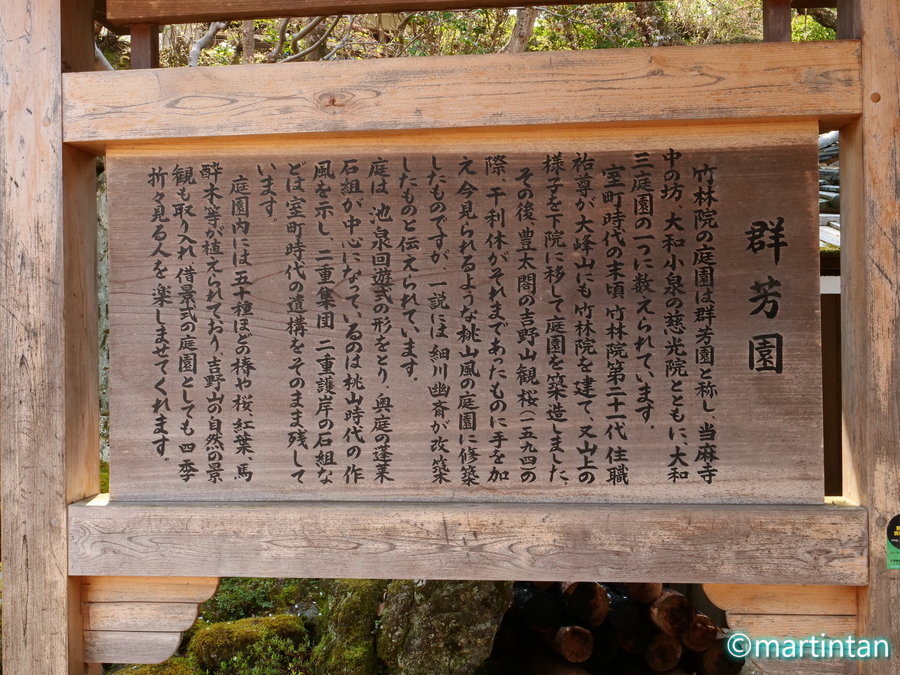 群芳園
竹林院の庭園は群芳園と称し、当麻寺
中の坊、大和小泉の慈光院とともに、大和
三庭園の一つに数えられています。
室町時代の末頃、竹林院第二十一代住職
祐尊が大峰山にも竹林院を建て、又山上の
様子を下院に移して庭園を築造しました。
その後、豊太閤の吉野山観桜(一五九四)の
際、千利休がそれまであったものに手を加
え今見られるような桃山風の庭園に修築
したものですが、一説には細川幽斎が改築
したものと伝えられています。
庭は、池泉回遊式の形をとり、奥庭の蓬莱
石組が中心になっているのは桃山時代の作
風を示し、二重集団、二重護岸の石組な
どは室町時代の遺構をそのまま残して
います。
庭園内には五十種ほどの椿や桜、紅葉、馬
酔木等が植えられており、吉野山の自然の景
観も取り入れ借景式の庭園としても四季
折々見る人を楽しませてくれます。
©martintan